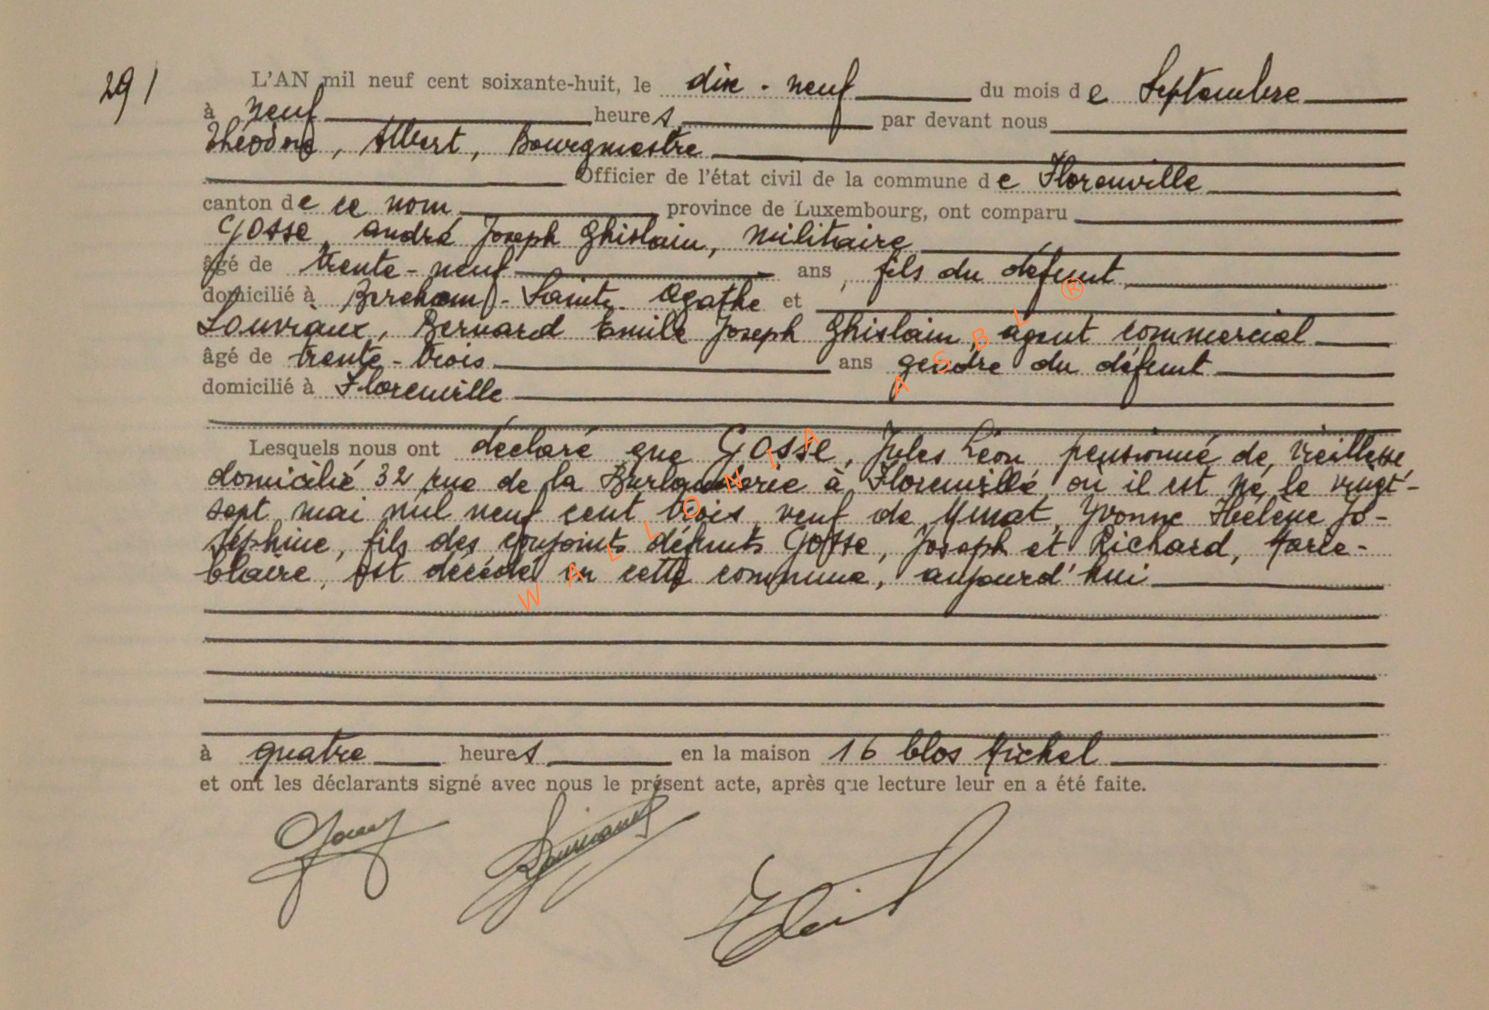 291
L'AN mil neuf cent soixante-huit, le dix-neuf du mois de Septembre
à neuf heures par devant nous
Théodore, Albert, Bourgmestre
Officier de l'état civil de la commune de Florenville
canton de ce nom province de Luxembourg, ont comparu
Gosse, André Joseph Ghislain, militaire
âgé de trente-neuf ans, fils du défunt,
domicilié à Berchem-Sainte-Agathe et
Louviaux, Bernard Emile Joseph Ghislain, agent commercial
âgé de trente-trois ans gendre du défunt
domicilié à Florenville
Lesquels nous ont déclaré que GOSSE, Jules Léon pensionné de vieillesse,
domicilié 32 rue de la à Florenville où il est né le vingt-
sept mai mil neuf cent trois, veuf de Yvonne Hélène Jo-
séphine, fils des conjoints défunts Gosse, Joseph et Richard, Marie-
Claire, est décédé en cette commune, aujourd'hui
à quatre heures en la maison 16 Clos Michel
et ont les déclarants signé avec nous le présent acte, après que lecture leur en a été faite.
WALLONIA ASBL ®